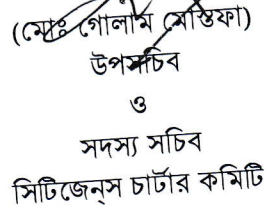 (মোঃ গোলাম মোস্তফা)
উপসচিব
ও
সদস্য সচিব
সিটিজেন্স চার্টার কমিটি